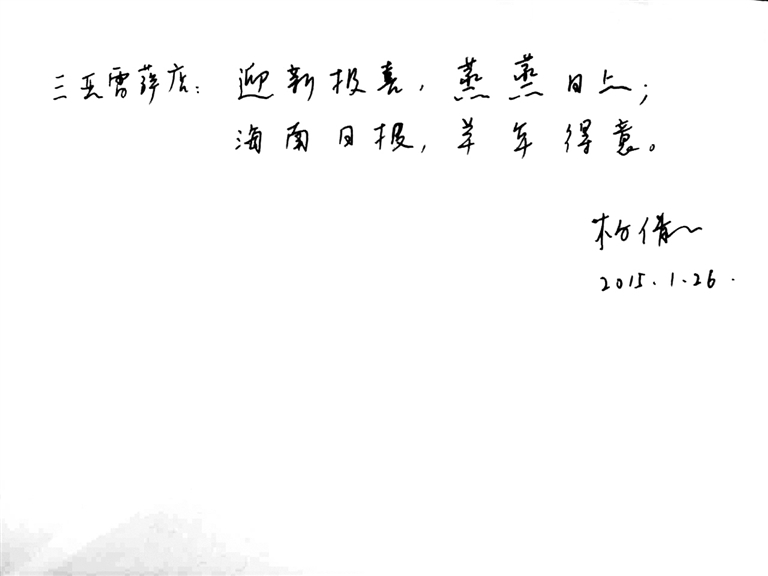 三亚雷薛店：迎新报喜，蒸蒸日上；
海南日报，羊年得意。
杨倩
2015.1.26.